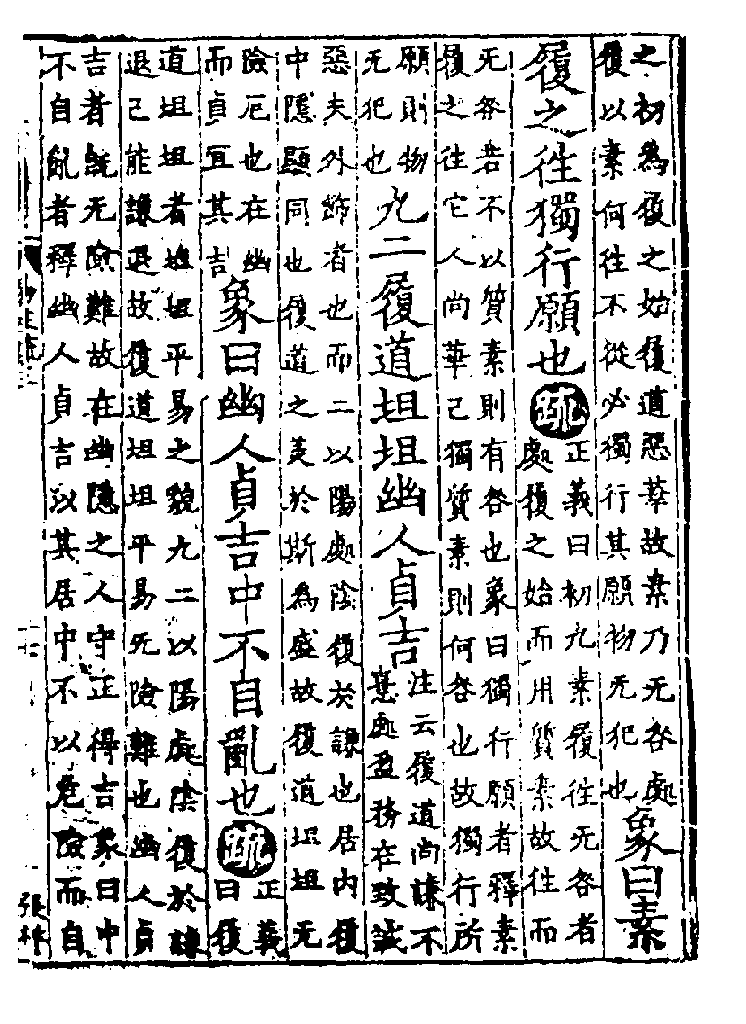 之初為履之始履道惡華故素乃无咎處
履以素何往不從必獨行其願物无犯也
象曰素
履之往獨行願也疏
正義曰初九素履往无咎者
處履之始而用質素故往而
无咎若不以質素則有咎也象曰獨行願者釋素
履之往它人尚華己獨質素則何咎也故獨行所
願則物
无犯也
九二履道坦坦幽人貞吉
注云履道尚謙不
憙處盈務在致誠
惡夫外飾者也而二以陽處陰履於謙也居内履
中隱顯同也履道之美於斯為盛故履道坦坦无
險厄也在幽
而貞宜其吉
象曰幽人貞吉中不自亂也疏
正義
曰履
道坦坦者坦坦平易之貌九二以陽處陰履於謙
退己能謙退故履道坦坦平易无險難也幽人貞
吉者既无險難故在幽隱之人守正得吉象曰中
不自亂者釋幽人貞吉以其居中不以危險而自
張林